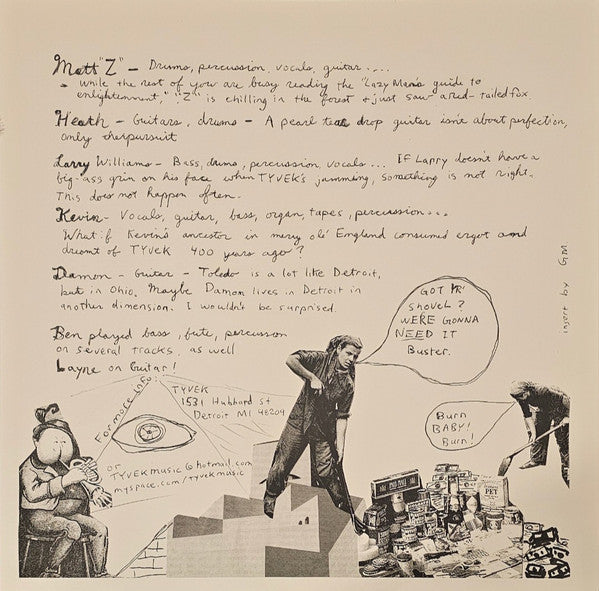 Matt "Z" - Drums, percussion, vocals, guitar ....
- while the rest of you are busy reading the "Lazy Man's guide to
enlightenment," "Z" is chilling in the forest + just saw a red-tailed fox.
Heath - Guitars, drums - A pearl tear drop guitar isn't about perfection,
only the pursuit
Larry Williams - Bass, drums, percussion, vocals... IF Larry doesn't have a
big-ass grin on his face when TYVEK's jamming, something is not right.
This does not happen often.
Kevin - Vocals, guitar, bass, organ, tapes, percussion...
What if Kevin's ancestor in merry olé England consumed ergot and
dreamt of TYVEK 400 years ago?
Damon - Guitar - Toledo is a lot like Detroit,
but in Ohio. Maybe Damon lives in Detroit in
another dimension. I wouldn't be surprised
Ben played bass, flute, percussion
on several tracks, as well
Layne on Guitar!
GOT YR
SHOVEL?
WE'RE GONNA
NEED IT
Buster.
insert by GM
Burn
BABY!
Burn!
For more info:
TYVEK
1531 Hubbard St
Detroit MI 48209
or
TYVEKmusic@hotmail.com
myspace.com/tyvekmusic
PET